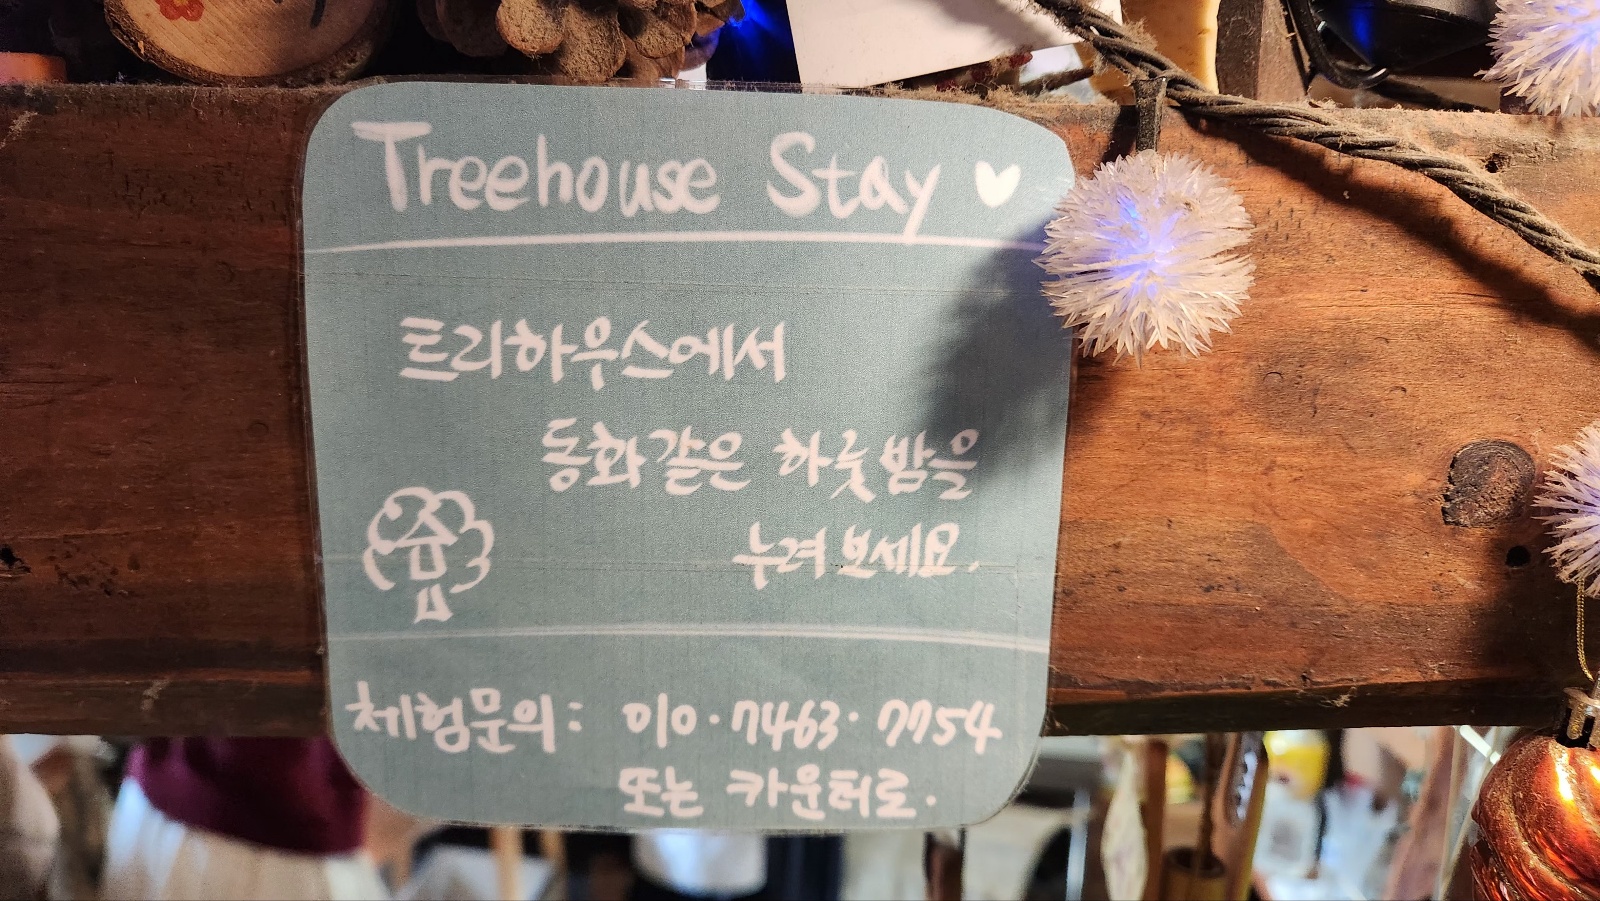 Treehouse Stay ♥
트리하우스에서
동화같은 하룻밤을
누려보세요.
체험문의: 010·7463·7754
또는 카운터로.